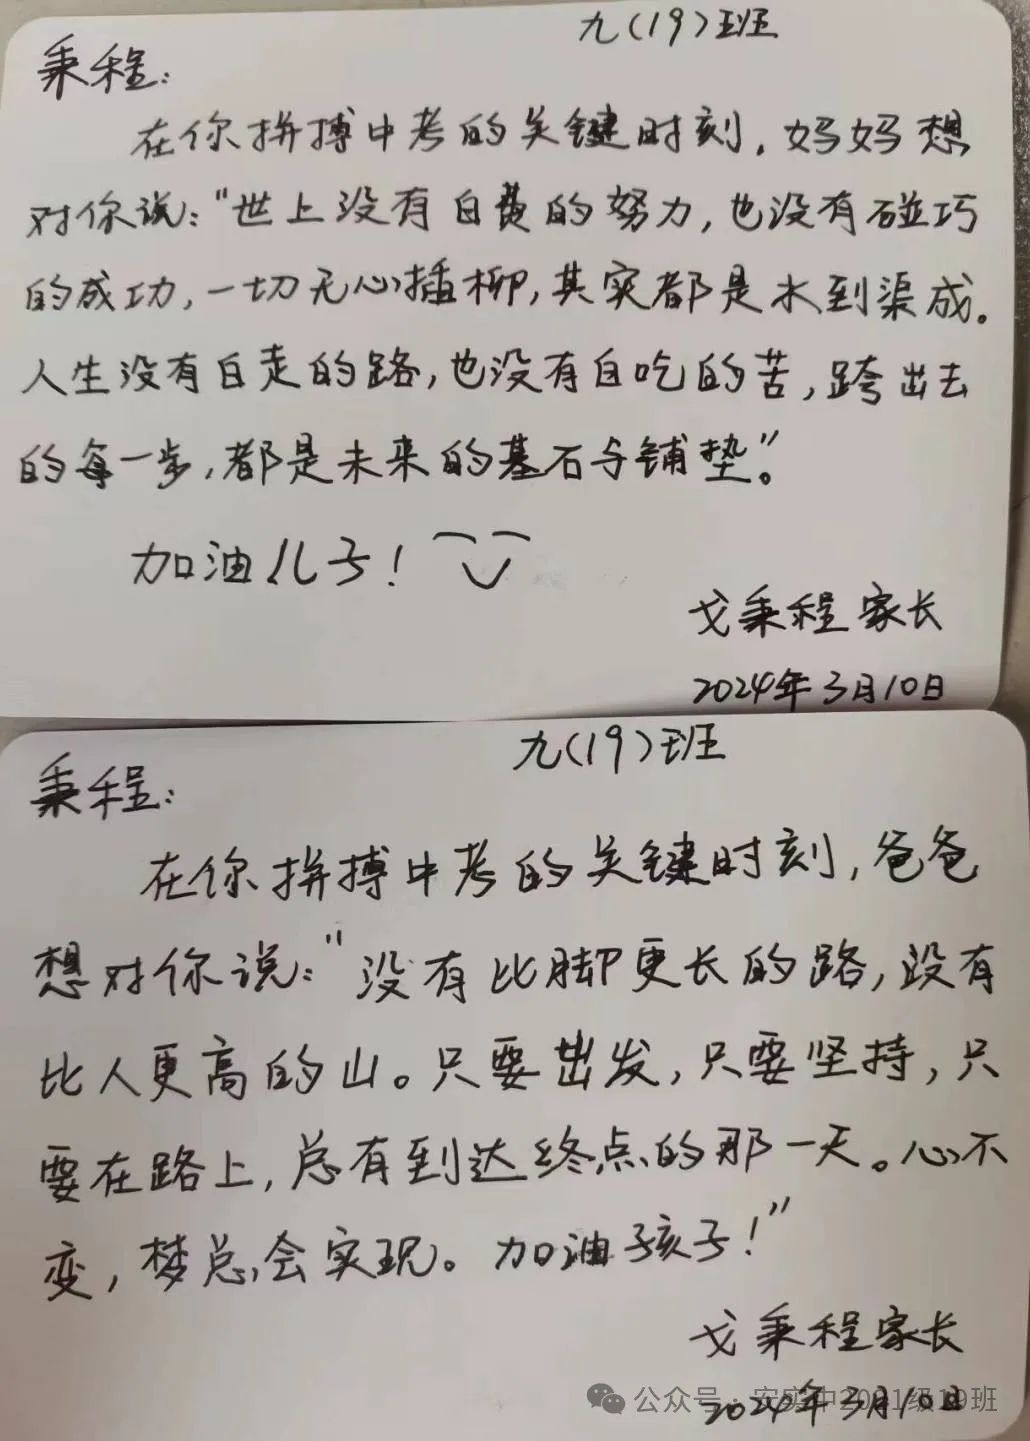 九(19)班
秉程:
在你拼搏中考的关键时刻,妈妈想
对你说:"世上没有白费的努力,也没有碰巧
的成功,一切无心插柳,其实都是水到渠成。
人生没有白走的路,也没有白吃的苦,跨出去
的每一步,都是未来的基石与铺垫。"
加油儿子!
戈秉程家长
2024年3月10日
九(19)班
秉程:
在你拼搏中考的关键时刻,爸爸
想对你说:"没有比脚更长的路,没有
比人更高的山。只要出发,只要坚持,只
要在路上,总有到达终点的那一天。心不
变,梦总会实现。加油孩子!"
戈秉程家长
2024年3月10日
公众号·安实中2021级19班